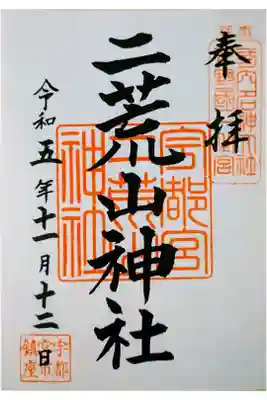 奉拝
二荒山神社
令和五年十一月十二日
宇都宮
二荒山
神社
宇都
宮市
鎮座